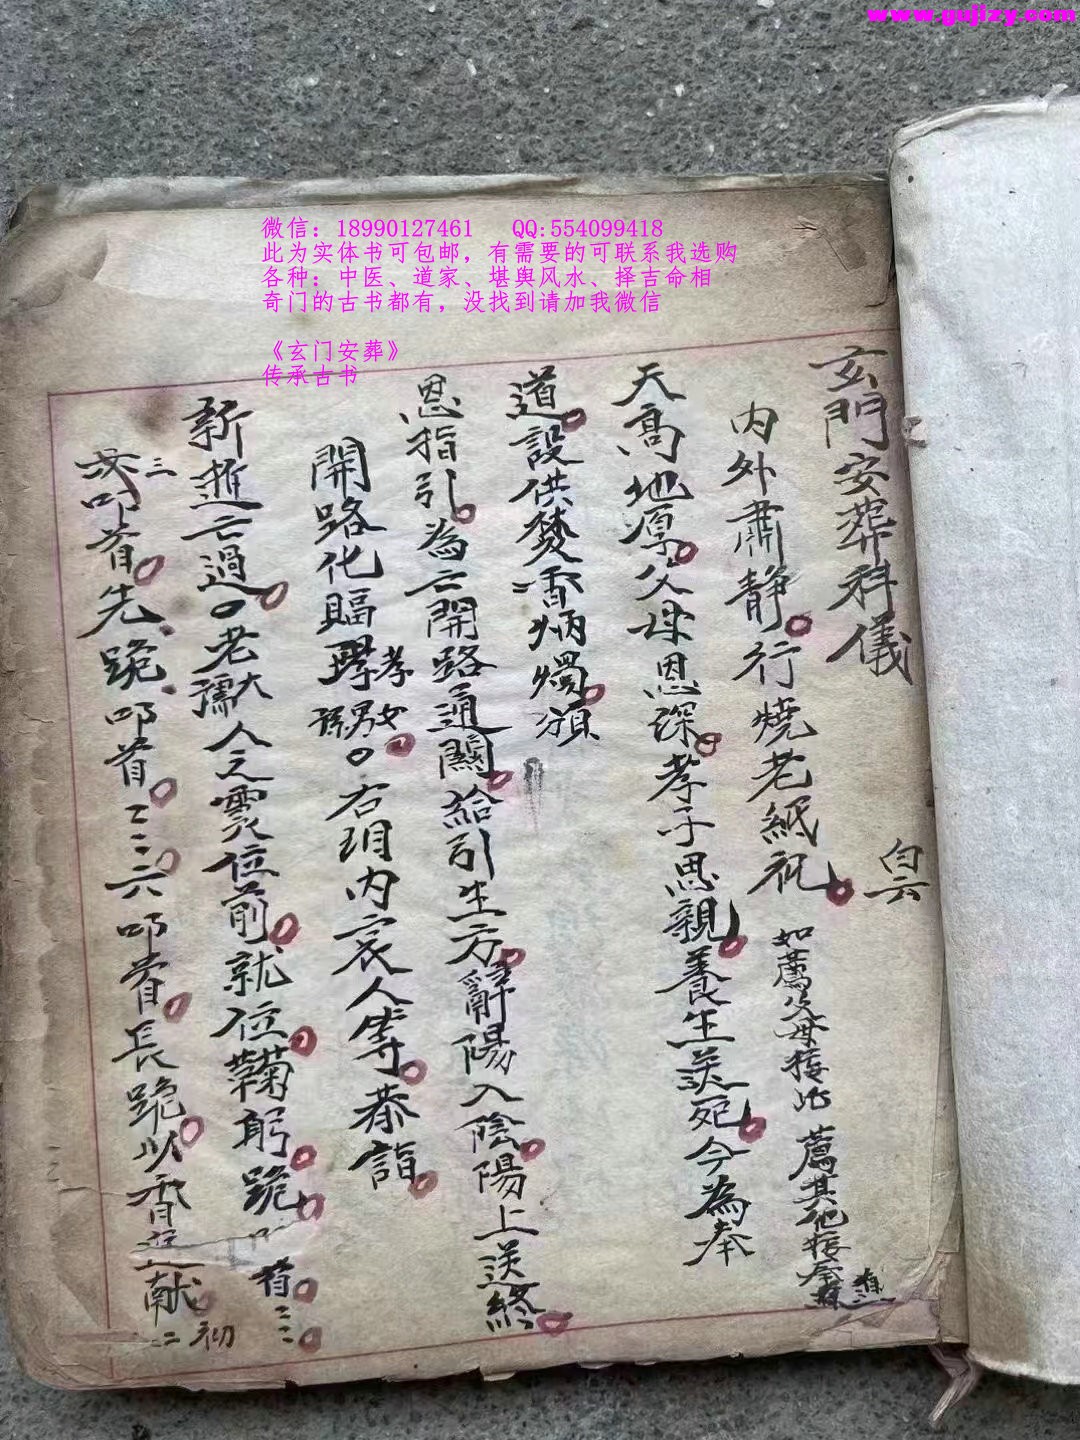 www.gujizy.com
微信：18990127461 QQ:554099418
此为实体书可包邮，有需要的可联系我选购
各种：中医、道家、堪舆风水、择吉命相
奇门的古书都有，没找到请加我微信
《玄门安葬》
传承古书
玄門安葬科儀
内外肅静行燒老紙祝 如薦父母接此 薦其他接
天高地厚父母恩深孝子思親養生送死今為奉
道設供焚香炳燭
恩指引為亡開路通關給引生方辭陽入陰陽上送終
開路化 孝男女 右 内哀人等恭詣
新逝亡過老大孺人之灵位前就位鞠躬跪 首三三
三 叩首先跪叩首二三六叩首長跪以香進献 初二三